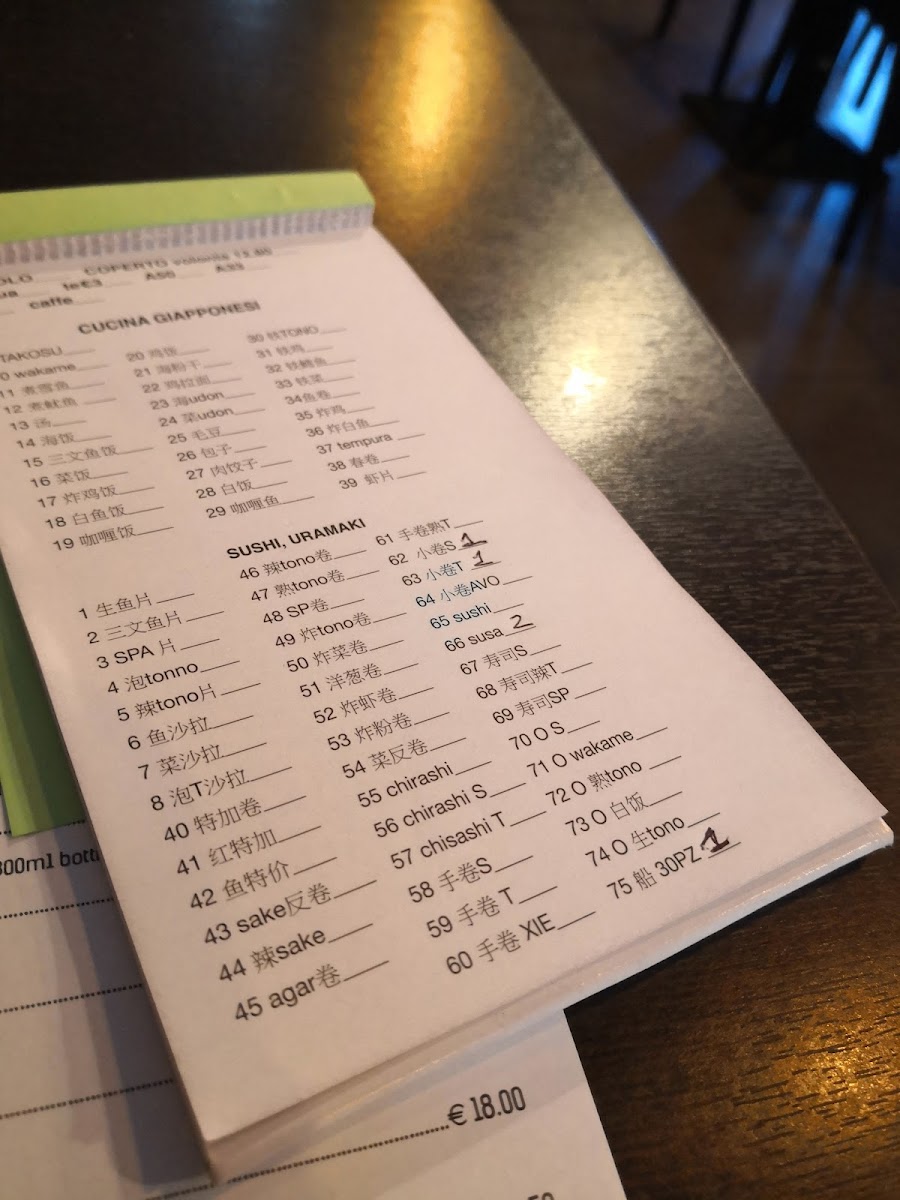 OLO____ COPERTO
ua____ te€3____ A50____ A33____
caffe____
CUCINA GIAPPONESI
TAKOSU____
0 wakame____
11 煮雪鱼____
12 煮鱿鱼____
13 汤____
14 海饭____
15 三文鱼饭____
16 菜饭____
17 炸鸡饭____
18 白鱼饭____
19 咖喱饭____
20 鸡饭____
21 海粉干____
22 鸡拉面____
23 海udon____
24 菜udon____
25 毛豆____
26 包子____
27 肉饺子____
28 白饭____
29 咖喱鱼____
30 铁TONO____
31 铁鸡____
32 铁鳕鱼____
33 铁菜____
34鱼卷____
35 炸鸡____
36 炸白鱼____
37 tempura____
38 春卷____
39 虾片____
SUSHI, URAMAKI
1 生鱼片____
2 三文鱼片____
3 SPA 片____
4 泡tonno____
5 辣tono片____
6 鱼沙拉____
7 菜沙拉____
8 泡T沙拉____
40 特加卷____
41 红特加____
42 鱼特价____
43 sake反卷____
44 辣sake____
45 agar卷____
46 辣tono卷____
47 熟tono卷____
48 SP卷____
49 炸tono卷____
50 炸菜卷____
51 洋葱卷____
52 炸虾卷____
53 炸粉卷____
54 菜反卷____
55 chirashi____
56 chirashi S____
57 chisashi T____
58 手卷S____
59 手卷 T____
60 手卷 XIE____
61 手卷熟T____
62 小卷S 1
63 小卷T 1
64 小卷AVO____
65 sushi____
66 susa 2
67 寿司S____
68 寿司辣T____
69 寿司SP____
70 O S____
71 O wakame____
72 O 熟tono____
73 O 白饭____
74 O 生tono____
75 船 30PZ 1
300ml botti
€ 18.00